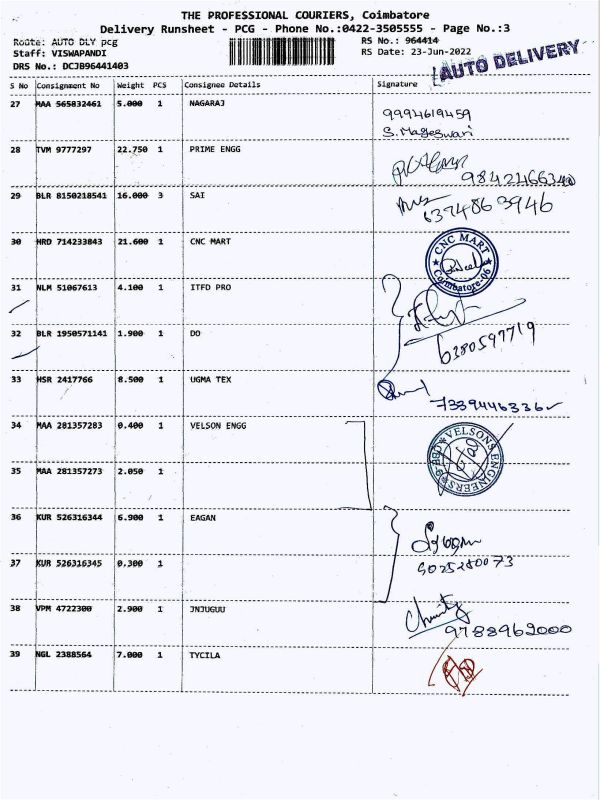 THE PROFESSIONAL COURIERS, Coimbatore
Delivery Runsheet - PCG - Phone No.:0422-3505555 - Page No.:3
Route: AUTO DLY pcg
RS No.: 964414
Staff: VISWAPANDI
RS Date: 23-Jun-2022
DRS No.: DCJB96441403
AUTO DELIVERY
S No Consignment No Weight PCS Consignee Details Signature
27 MAA 565832461 5.000 1 NAGARAJ
9994619459
S. Mageswari
28 TVM 9777297 22.750 1 PRIME ENGG
29 BLR 8150218541 16.000 3 SAI
6374863946
30 HRD 714233843 21.600 1 CNC MART
CNC MART
Coimbatore-06
31 NLM 51067613 4.100 1 ITFD PRO
32 BLR 1950571141 1.900 1 DO
6380597719
33 HSR 2417766 8.500 1 UGMA TEX
7339446336
34 MAA 281357283 0.400 1 VELSON ENGG
VELSONS ENGINEERS
35 MAA 281357273 2.050 1
36 KUR 526316344 6.900 1 EAGAN
37 KUR 526316345 0.300 1
38 VPM 4722300 2.900 1 JNJUGUU
9788962000
39 NGL 2388564 7.000 1 TYCILA